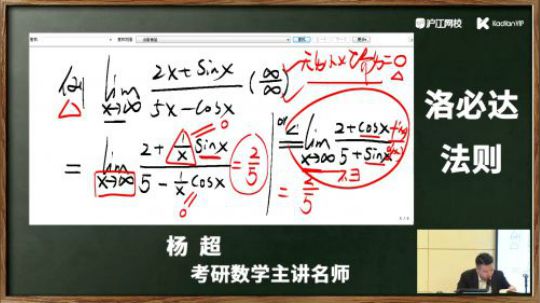 沪江网校 KaoYanVIP
例 lim x→∞ 2x+Sinx / 5x-Cosx (∞/∞)
= lim x→∞ 2+1/x Sinx / 5-1/x Cosx = 2/5
0
0
or L = lim x→∞ 2+Cosx / 5+Sinx
不∃
= 2/5
洛必达
法则
杨 超
考研数学主讲名师